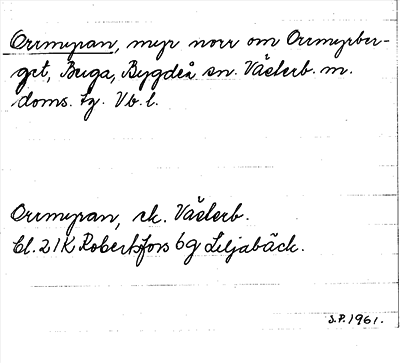 Orrmyran, myr norr om Orrmyrber-
get, Buga, Bygdeå sn. Västerb. m.
doms. tg. Vb. l.
Orrmyran, ek. Västerb.
Bl. 21K Robertsfors 6g Liljabäck.
S.P. 1961.